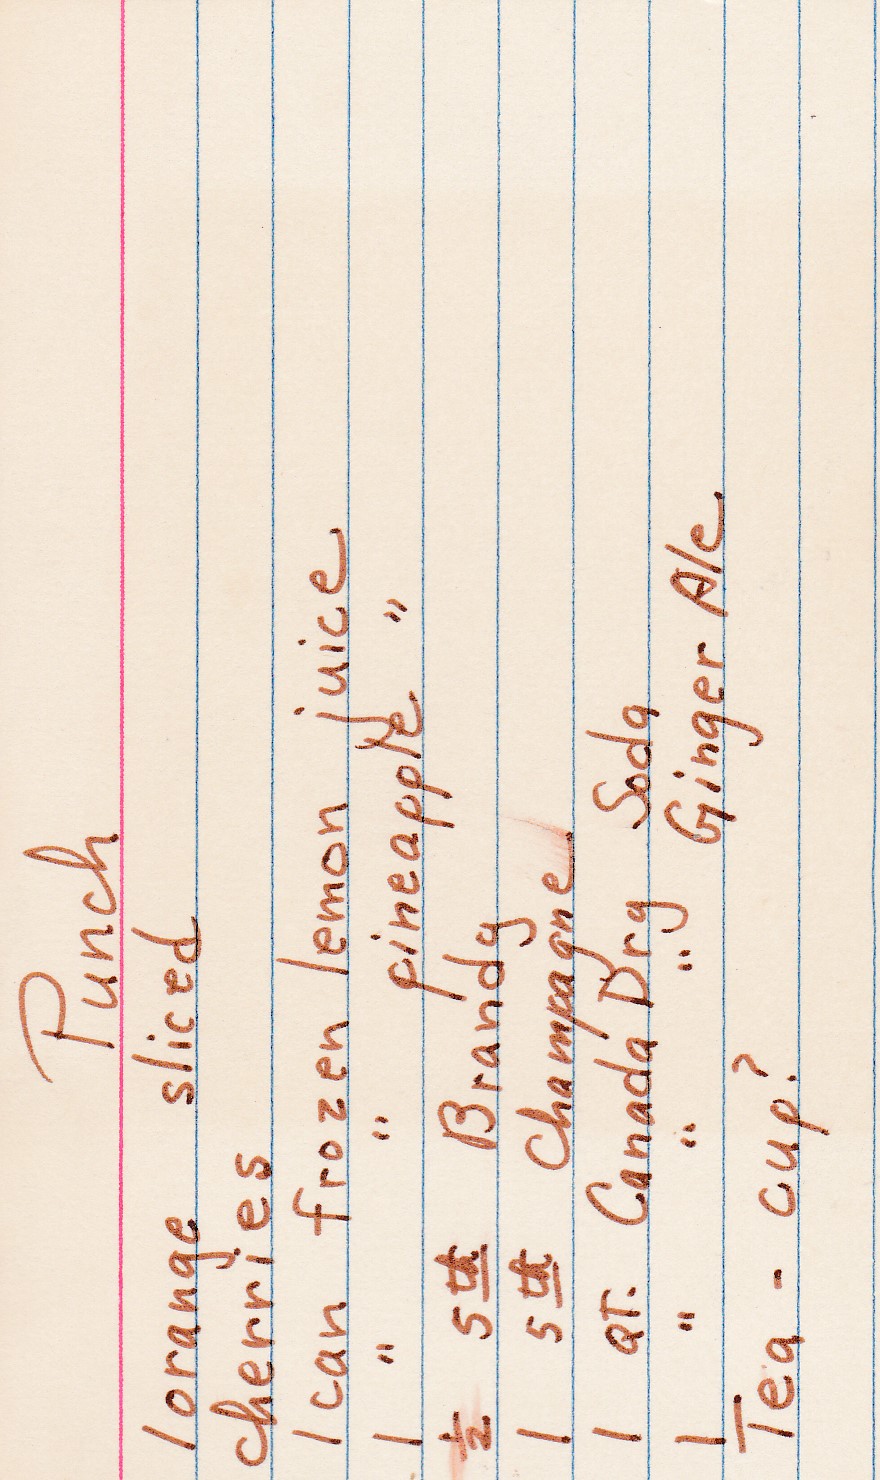 Punch
1 orange sliced
cherries
1 can frozen lemon juice
1 " " pineapple "
½ 5th Brandy
1 5th Champagne
1 QT. Canada Dry Soda
1 " " " Ginger Ale
Tea - cup?